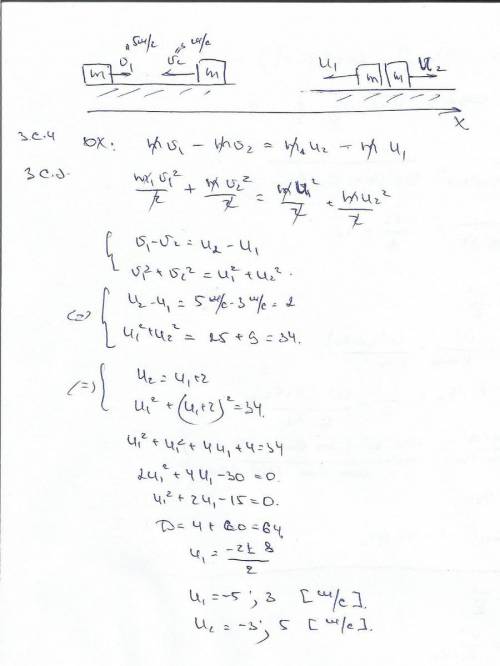 5м/с 3 м/с
m υ₁ υ₂ m u₁ m m u₂
x
З.С.И OX: mυ₁ - mυ₂ = mu₂ - mu₁
З С.Э. mυ₁²/2 + mυ₂²/2 = mu₁²/2 + mu₂²/2
{ υ₁-υ₂ = u₂-u₁
υ₁²+υ₂² = u₁²+u₂².
(=) { u₂-u₁ = 5 м/с-3 м/с = 2
u₁²+u₂² = 25+9=34.
(=) { u₂ = u₁+2
u₁² + (u₁+2)² = 34.
u₁² + u₁² + 4u₁ + 4 = 34
2u₁² + 4u₁ - 30 = 0.
u₁² + 2u₁ - 15 = 0.
D = 4 + 60 = 64
u₁ = (-2 ± 8)/2
u₁ = -5 ; 3 [м/с].
u₂ = -3 ; 5 [м/с].